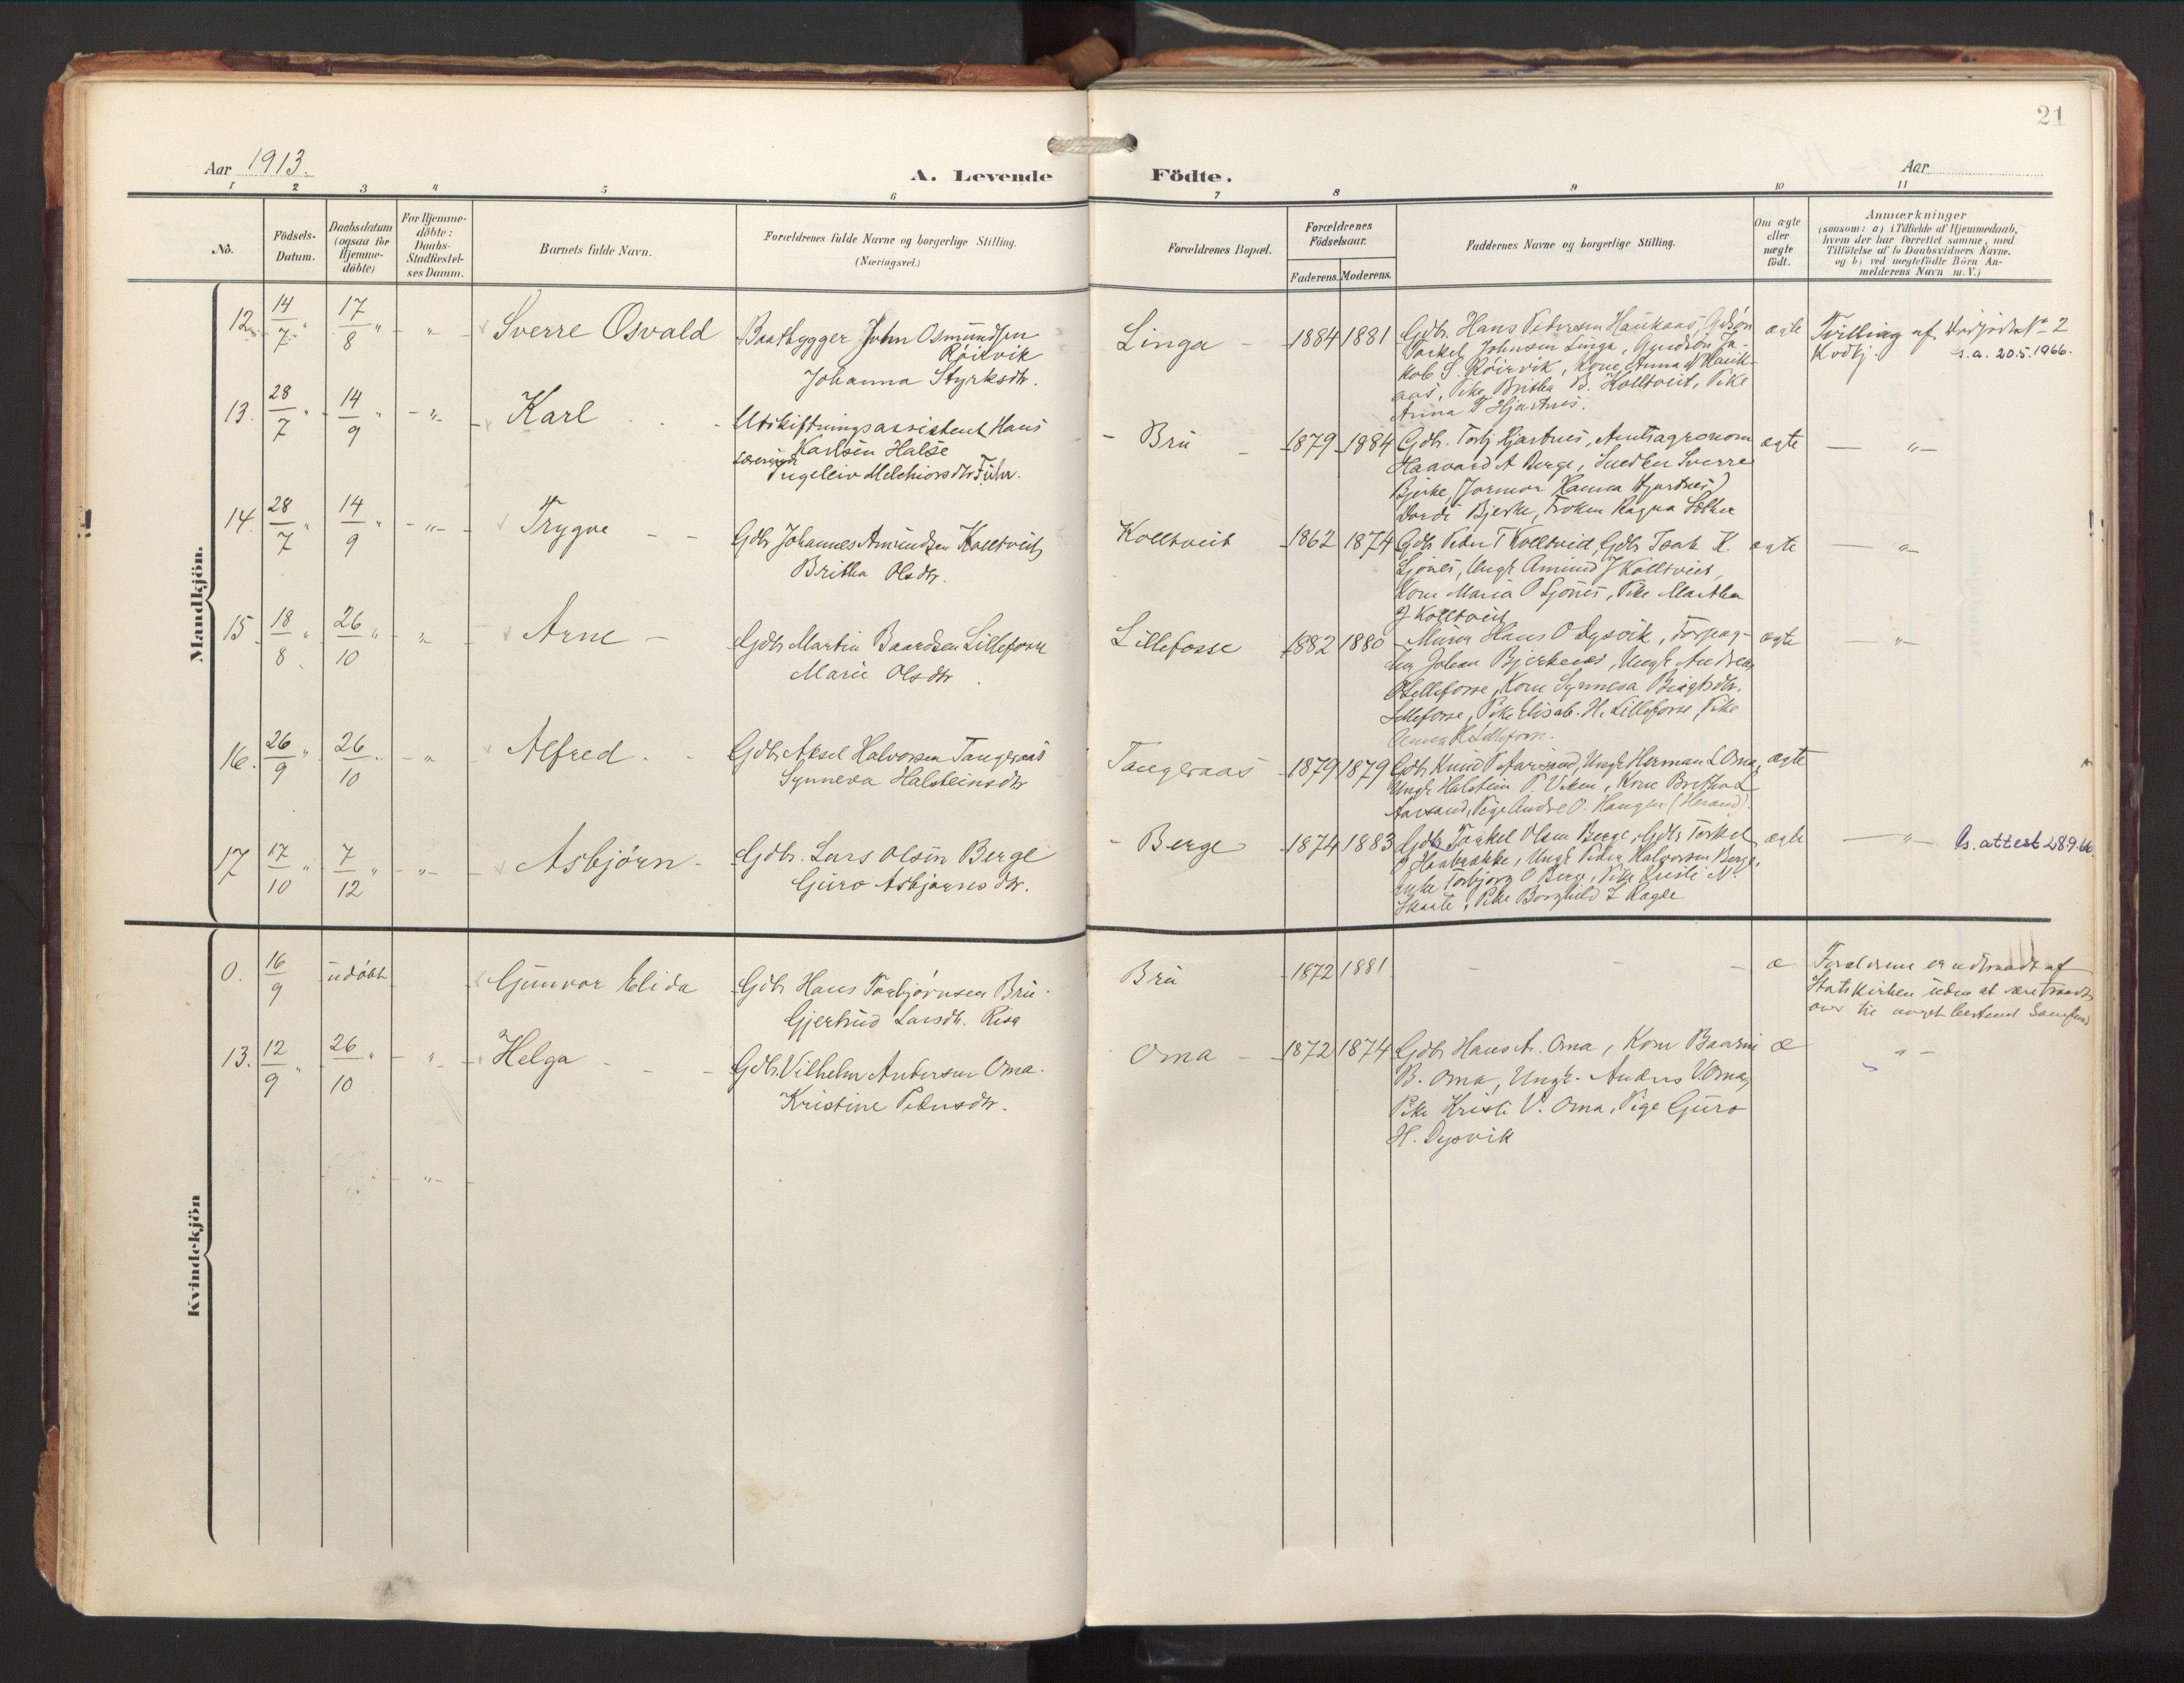 21
Aar 1913.
A. Levende Födte.
Aar
1 2 3 4 5 6 7 8 9 10 11
No.
Födsels-Datum.
Daabsdatum (ogsaa for Hjemme-döbte)
For Hjemme-döbte: Daabs-Stadfæstel-ses Datum.
Barnets fulde Navn.
Forældrenes fulde Navne og borgerlige Stilling.
(Næringsvei.)
Forældrenes Bopæl.
Forældrenes Födselsaar.
Faderens. Moderens.
Faddernes Navne og borgerlige Stilling.
Om ægte eller uægte födt.
Anmærkninger
(saasom: a) i Tilfælde af Hjemmedaab,
hvem der har forrettet samme, med
Tilföielse af to Daabsvidners Navne.
og b) ved uægtefödte Börn An-
melderens Navn m. V.)
Mandkjön.
12 14/7 " 17/8 " - " - Sverre Osvald
Baatbygger John Osmundsen
Röirvik
Johanna Styrksdtr.
Linga - 1884 1881
Gdb. Hans Pedersen Haukaas, Gdsön
Torkel Johnsen Linga, Gaardsön Ja-
kob S. Röirvik, Kone Anna Hauk-
aas, Pike Britha B. Kolltveit, Pike
Anna T Hjartnes.
ægte
Tvilling af
s.a. 20.5.1966.
13. 28/7 " 14/9 " - " - Karl
Utskiftningsassistent Hans
Karlsen Halse
Ingeleiv Melchiorsdtr Führ.
- Bru - 1879 1884
Gdb. Torbj Hjartnes, Amtsagronom
Haavard A Berge, Snedker Sverre
Bjerke, (Jormor Hanna Hjartnes)
Bjerke, Fröken Ragna
ægte — " —
14. 28/7 " 14/9 " - " - Trygve - -
Gdb Johannes Amundsen Kolltveit
Britha Olsdtr.
Kolltveit 1862 1874
Gdb Peder T Kolltveit, Gdb Isak K.
Sjönes, Ungk Amund J Kolltveit,
Kone Maria O Sjönes, Pike Martha
J Kolltveit
ægte — " —
15 18/8 " 26/10 " " - Arne -
Gdb Martin Baardsen Lillefosse
Marie Olsdtr
Lillefosse 1882 1880
Murer Hans O Dysvik, Forpag-
ter Johan Bjerkenes, Ungk Andreas
O Lillefosse, Kone Synneva Bergtsdtr.
Lillefosse, Pike Elisab. H. Lillefosse, Pike
Anna H Lillefosse.
ægte — " —
16. 26/9 " 26/10 " - " Alfred - -
Gdb Aksel Halvorsen Tangeraas
Synneva Halsteinsdtr
Tangeraas 1879 1879
Gdb Knud P Aarsand, Ungk Herman L Oma,
Ungk Halstein P. Viken, Kone Britha L
Aarsand, Pige Andrea O. Haugen (Herand).
ægte
17 17/10 " 7/12 " - " - Asbjörn -
Gdb. Lars Olsen Berge
Guro Asbjörnsdtr.
- Berge 1874 1883
Gdb Torkel Olsen Berge, Gdb Torkel
J Haabrekke, Ungk Peder Halvorsen Berge,
Enke Torbjörg O Berge, Pike Kristi N.
Skaate, Pike Borghild L Ragde
ægte — " — Ls. attest 289.66.
Kvindekjön
0. 16/9 udöbt Gunvor Elida
Gdb Hans Torbjörnsen Bru.
Gjertrud Larsdtr. Risa
Bru 1872 1881 - - - æ
Forældrene er udtraadt af
Statskirken uden at være traadt
over til noget bestemt Samfund
13. 12/9 " 26/10 " - " - Helga - - -
Gdb. Vilhelm Andersen Oma.
Kristine Pedersdtr.
Oma - 1872 1874
Gdb Hans A. Oma, Kone Baarni
B. Oma, Ungk. Anders V. Oma,
Pike Kristi V. Oma, Pige Guro
H. Dysvik
æ - " -
- " -